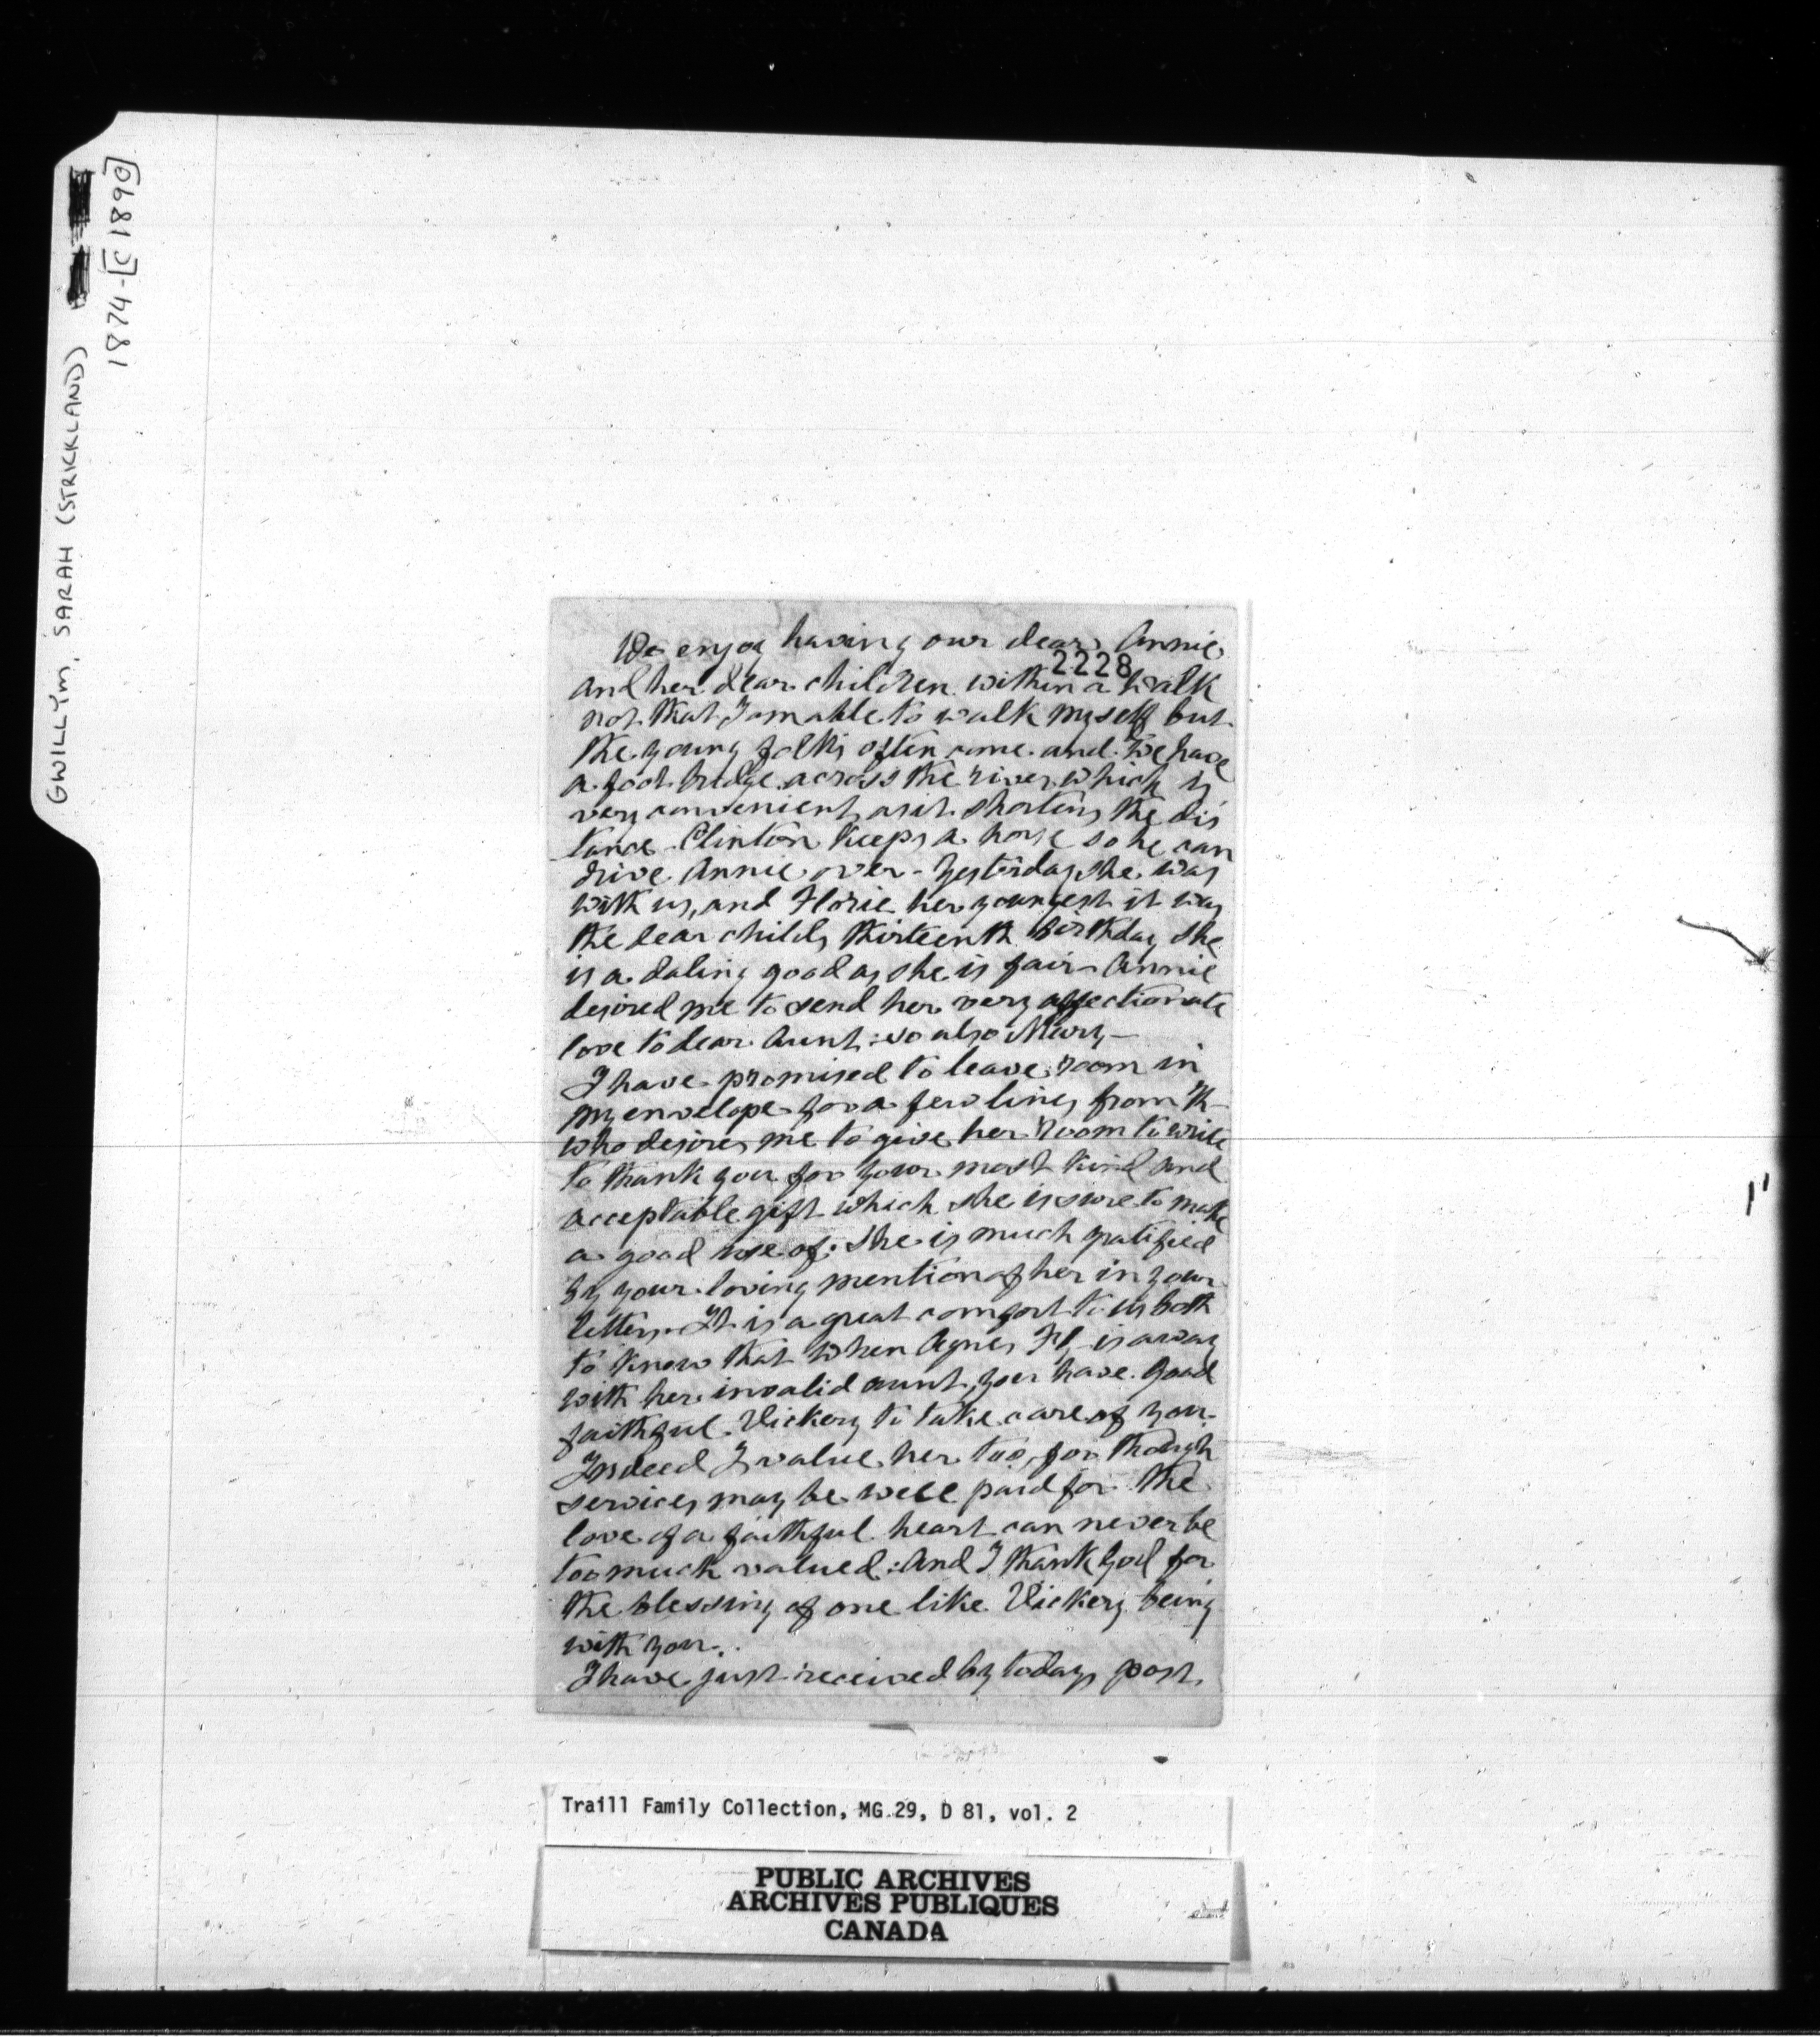 GWILLYM, SARAH (STRICKLAND)
1874-[C 1890]
We enjoy having our dear Annie
2228
and her dear children within a walk
not that I am able to walk myself but
the young folks often come and we have
a foot bridge across the river which is
very convenient as it shortens the dis
tance - Clinton keeps a horse so he can
drive Annie over - Yesterday she was
with us, and Florie her youngest it was
the dear childs thirteenth Birthday she
is a daling good as she is fair - Annie
desired me to send her very affectionate
love to dear Aunt: so also Mary -
I have promised to leave room in
my envelope for a few lines from K
who desires me to give her room to write
to thank you for your most kind and
acceptable gift which she is sure to make
a good use of: she is much gratified
by your loving mention of her in your
letters. It is a great comfort to us both
to know that when Agnes is away
with her invalid aunt, you have good
faithful Vickery to take care of you.
Indeed I value her too, for though
services may be well paid for the
love of a faithful heart can never be
too much valued: And I thank God for
the blessing of one like Vickery being
with you.
I have just received by todays post.
Traill Family Collection, MG 29, D 81, vol. 2
PUBLIC ARCHIVES
ARCHIVES PUBLIQUES
CANADA